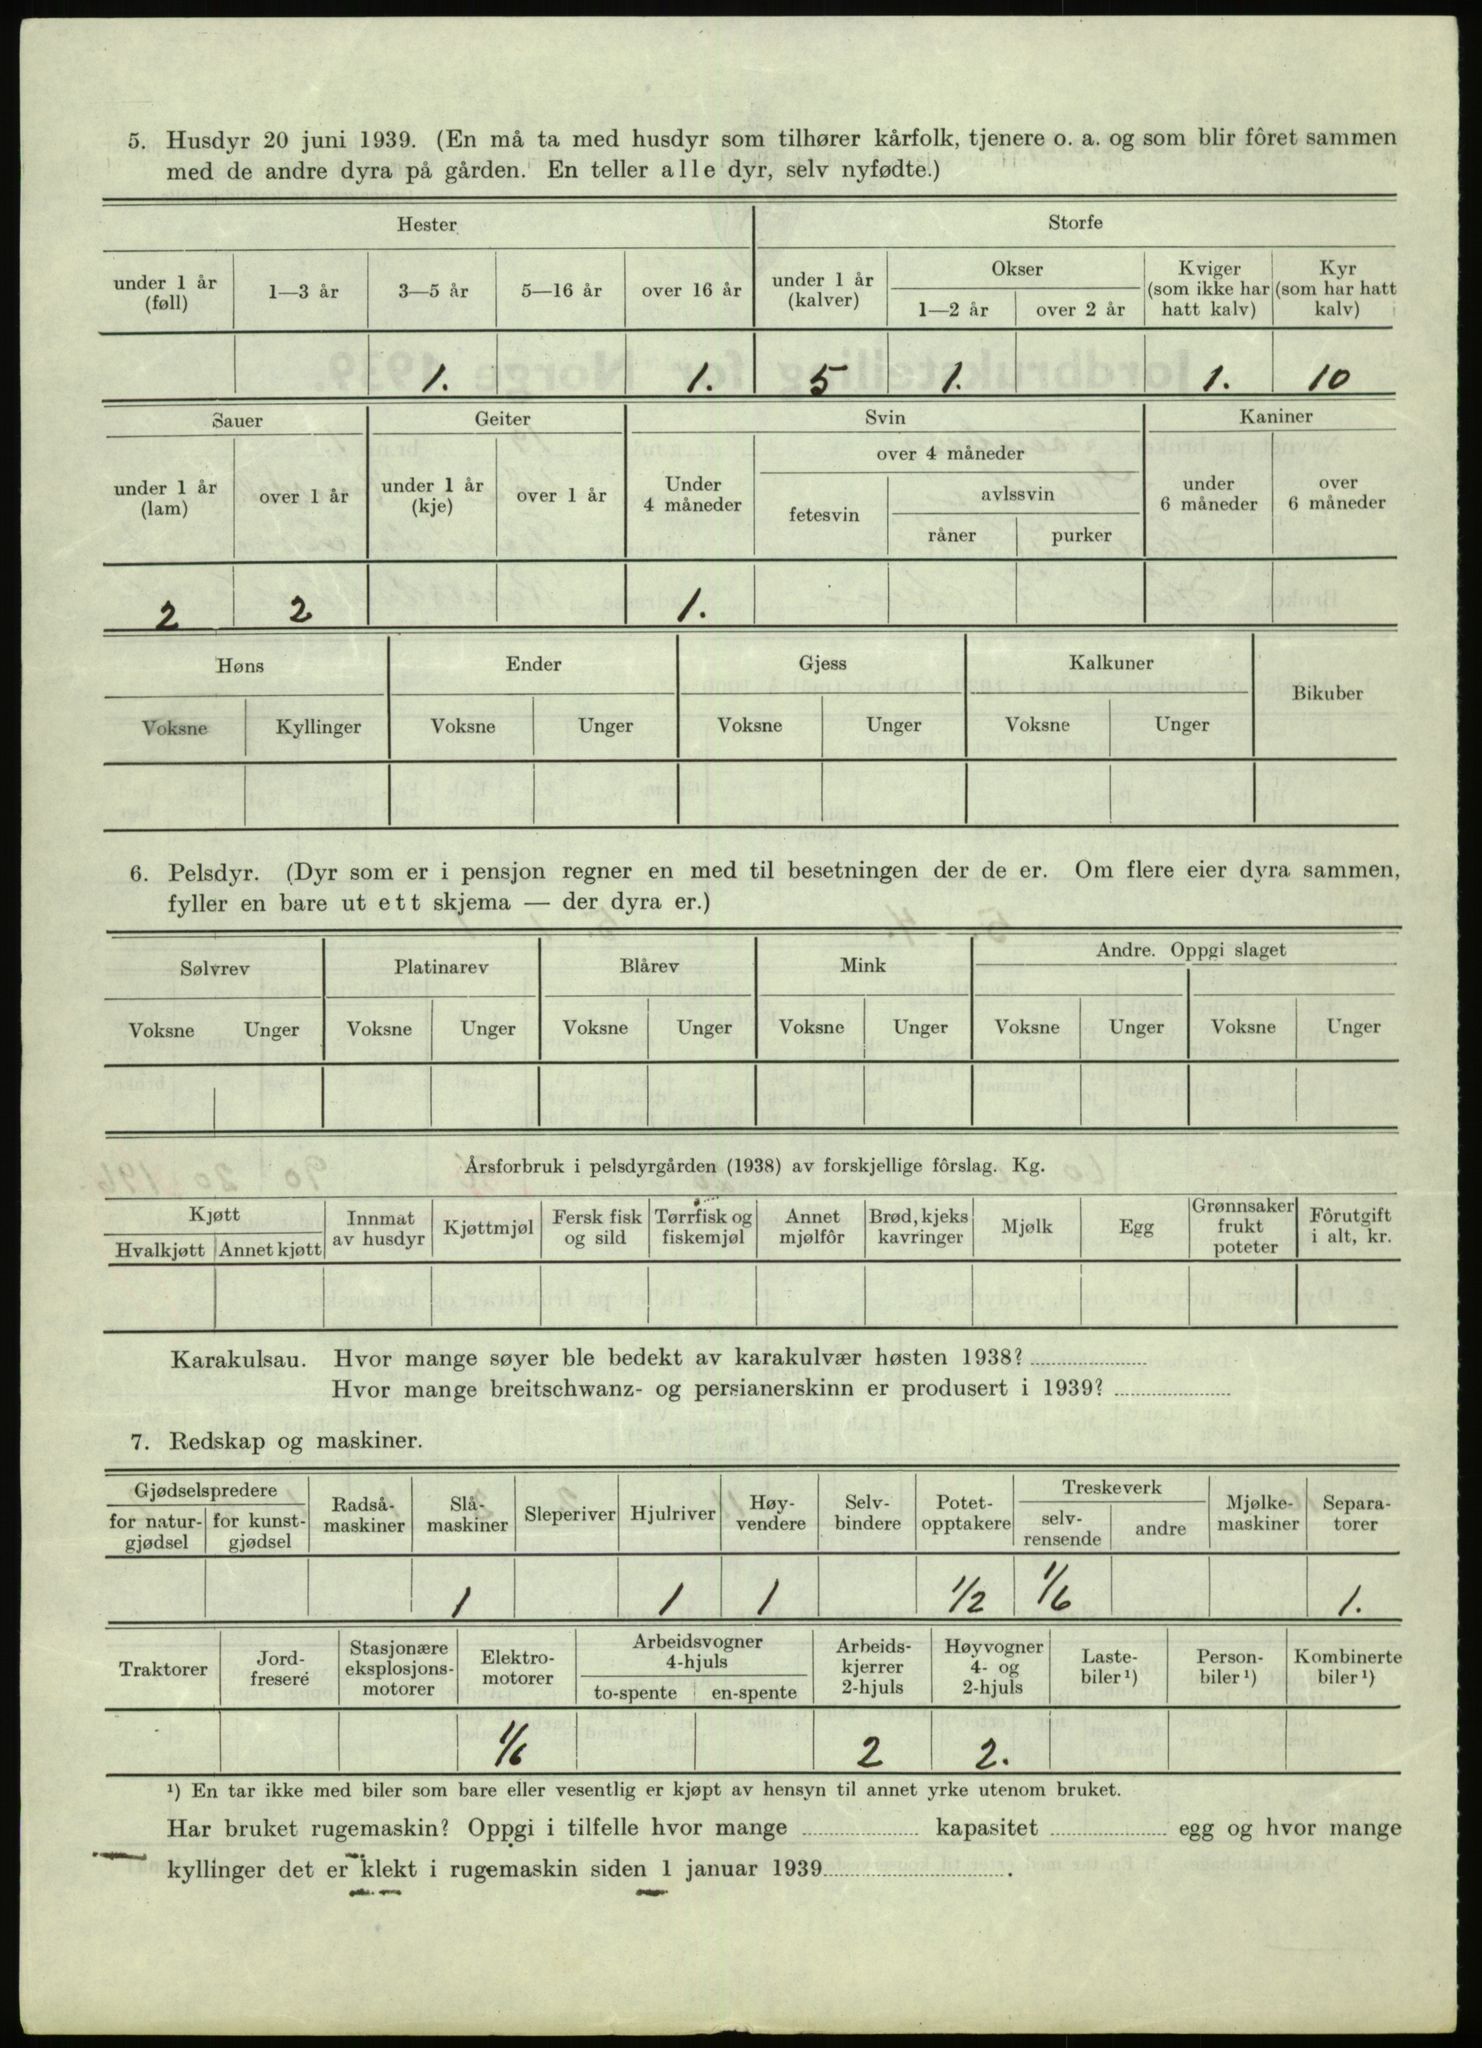 5. Husdyr 20 juni 1939. (En må ta med husdyr som tilhører kårfolk, tjenere o. a. og som blir fôret sammen
med de andre dyra på gården. En teller alle dyr, selv nyfødte.)
Hester Storfe
under 1 år (føll) 1—3 år 3—5 år 5—16 år over 16 år under 1 år (kalver) Okser 1—2 år over 2 år Kviger (som ikke har hatt kalv) Kyr (som har hatt kalv)
1. 1. 5 1. 1. 10
Sauer Geiter Svin Kaniner
under 1 år (lam) over 1 år under 1 år (kje) over 1 år Under 4 måneder over 4 måneder fetesvin avlssvin råner purker under 6 måneder over 6 måneder
2 2 1.
Høns Ender Gjess Kalkuner Bikuber
Voksne Kyllinger Voksne Unger Voksne Unger Voksne Unger
6. Pelsdyr. (Dyr som er i pensjon regner en med til besetningen der de er. Om flere eier dyra sammen,
fyller en bare ut ett skjema — der dyra er.)
Sølvrev Platinarev Blårev Mink Andre. Oppgi slaget
Voksne Unger Voksne Unger Voksne Unger Voksne Unger Voksne Unger Voksne Unger
Årsforbruk i pelsdyrgården (1938) av forskjellige fôrslag. Kg.
Kjøtt Hvalkjøtt Annet kjøtt Innmat av husdyr Kjøttmjøl Fersk fisk og sild Tørrfisk og fiskemjøl Annet mjølfôr Brød, kjeks kavringer Mjølk Egg Grønnsaker frukt poteter Fôrutgift i alt, kr.
Karakulsau. Hvor mange søyer ble bedekt av karakulvær høsten 1938?
Hvor mange breitschwanz- og persianerskinn er produsert i 1939?
7. Redskap og maskiner.
Gjødselspredere for natur-gjødsel for kunst-gjødsel Radså-maskiner Slå-maskiner Sleperiver Hjulriver Høy-vendere Selv-bindere Potet-opptakere Treskeverk selv-rensende andre Mjølke-maskiner Separa-torer
1 1 1 1/2 1/6 1.
Traktorer Jord-fresere Stasjonære eksplosjons-motorer Elektro-motorer Arbeidsvogner 4-hjuls to-spente en-spente Arbeids-kjerrer 2-hjuls Høyvogner 4- og 2-hjuls Laste-biler ¹) Person-biler ¹) Kombinerte biler ¹)
1/6 2 2.
¹) En tar ikke med biler som bare eller vesentlig er kjøpt av hensyn til annet yrke utenom bruket.
Har bruket rugemaskin? Oppgi i tilfelle hvor mange kapasitet egg og hvor mange
kyllinger det er klekt i rugemaskin siden 1 januar 1939 .